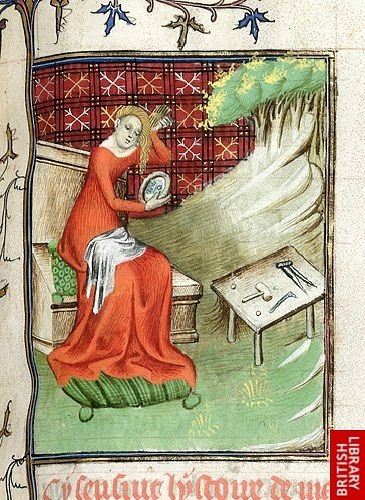 Cy sensuit lystoire de me
BRITISH
LIBRARY